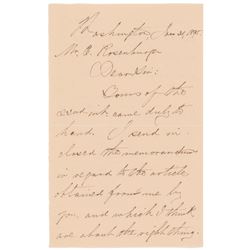 Washington, Jan 21, 1895.
Mr. C. Rosenberger
Dear Sir:
Yours of the
second inst. came duly to
hand. I send in
closed the memorandum
in regard to the article
obtained from me by
you, and which I think
are about the right thing.